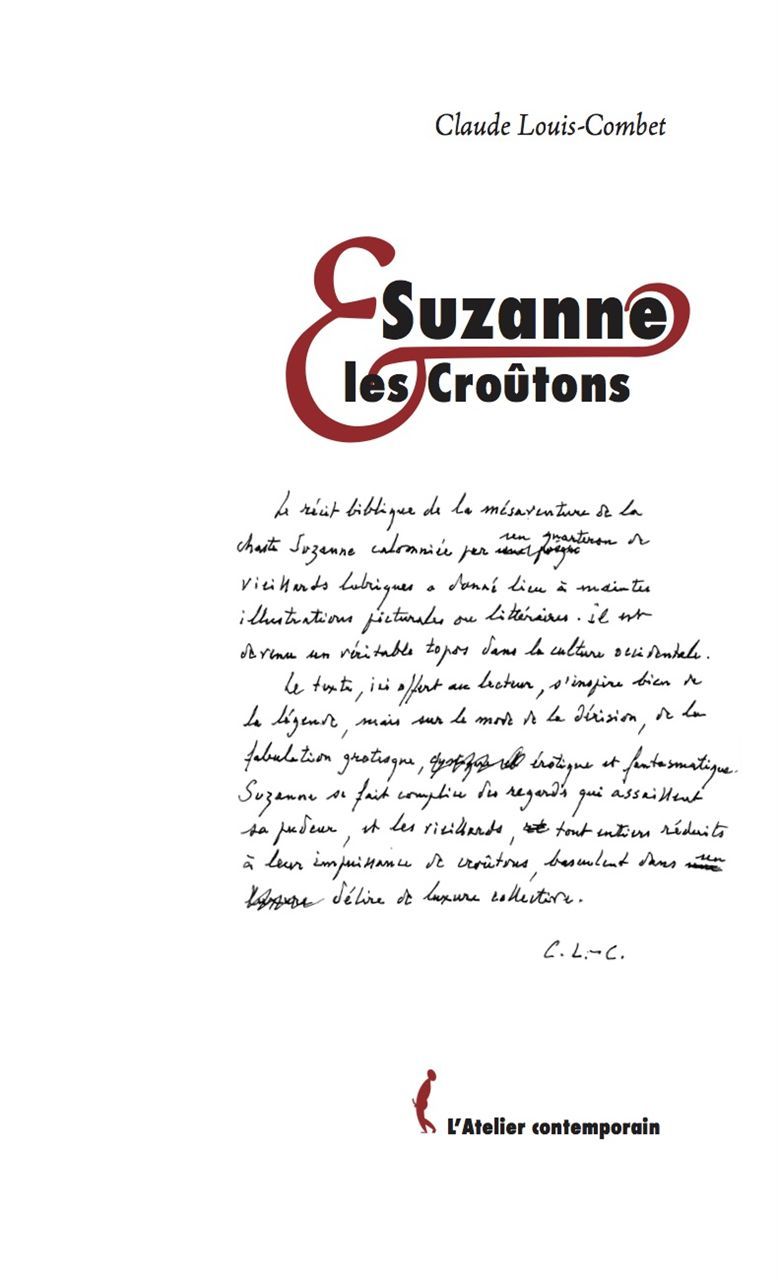 Claude Louis-Combet
Suzanne
& les Croûtons
Le récit biblique de la mésaventure de la
chaste Suzanne calomniée par un quarteron de
vieillards lubriques a donné lieu à maintes
illustrations picturales ou littéraires. Il est
devenu un véritable topos dans la culture occidentale.
Le texte, ici offert au lecteur, s'inspire bien de
la légende, mais sur le mode de la dérision, de la
fabulation grotesque, érotique et fantasmatique.
Suzanne se fait complice des regards qui assaillent
sa pudeur, et les vieillards, tout entiers réduits
à leur impuissance de croûtons, basculent dans un
délire de luxure collective.
C. L.-C.
L'Atelier contemporain